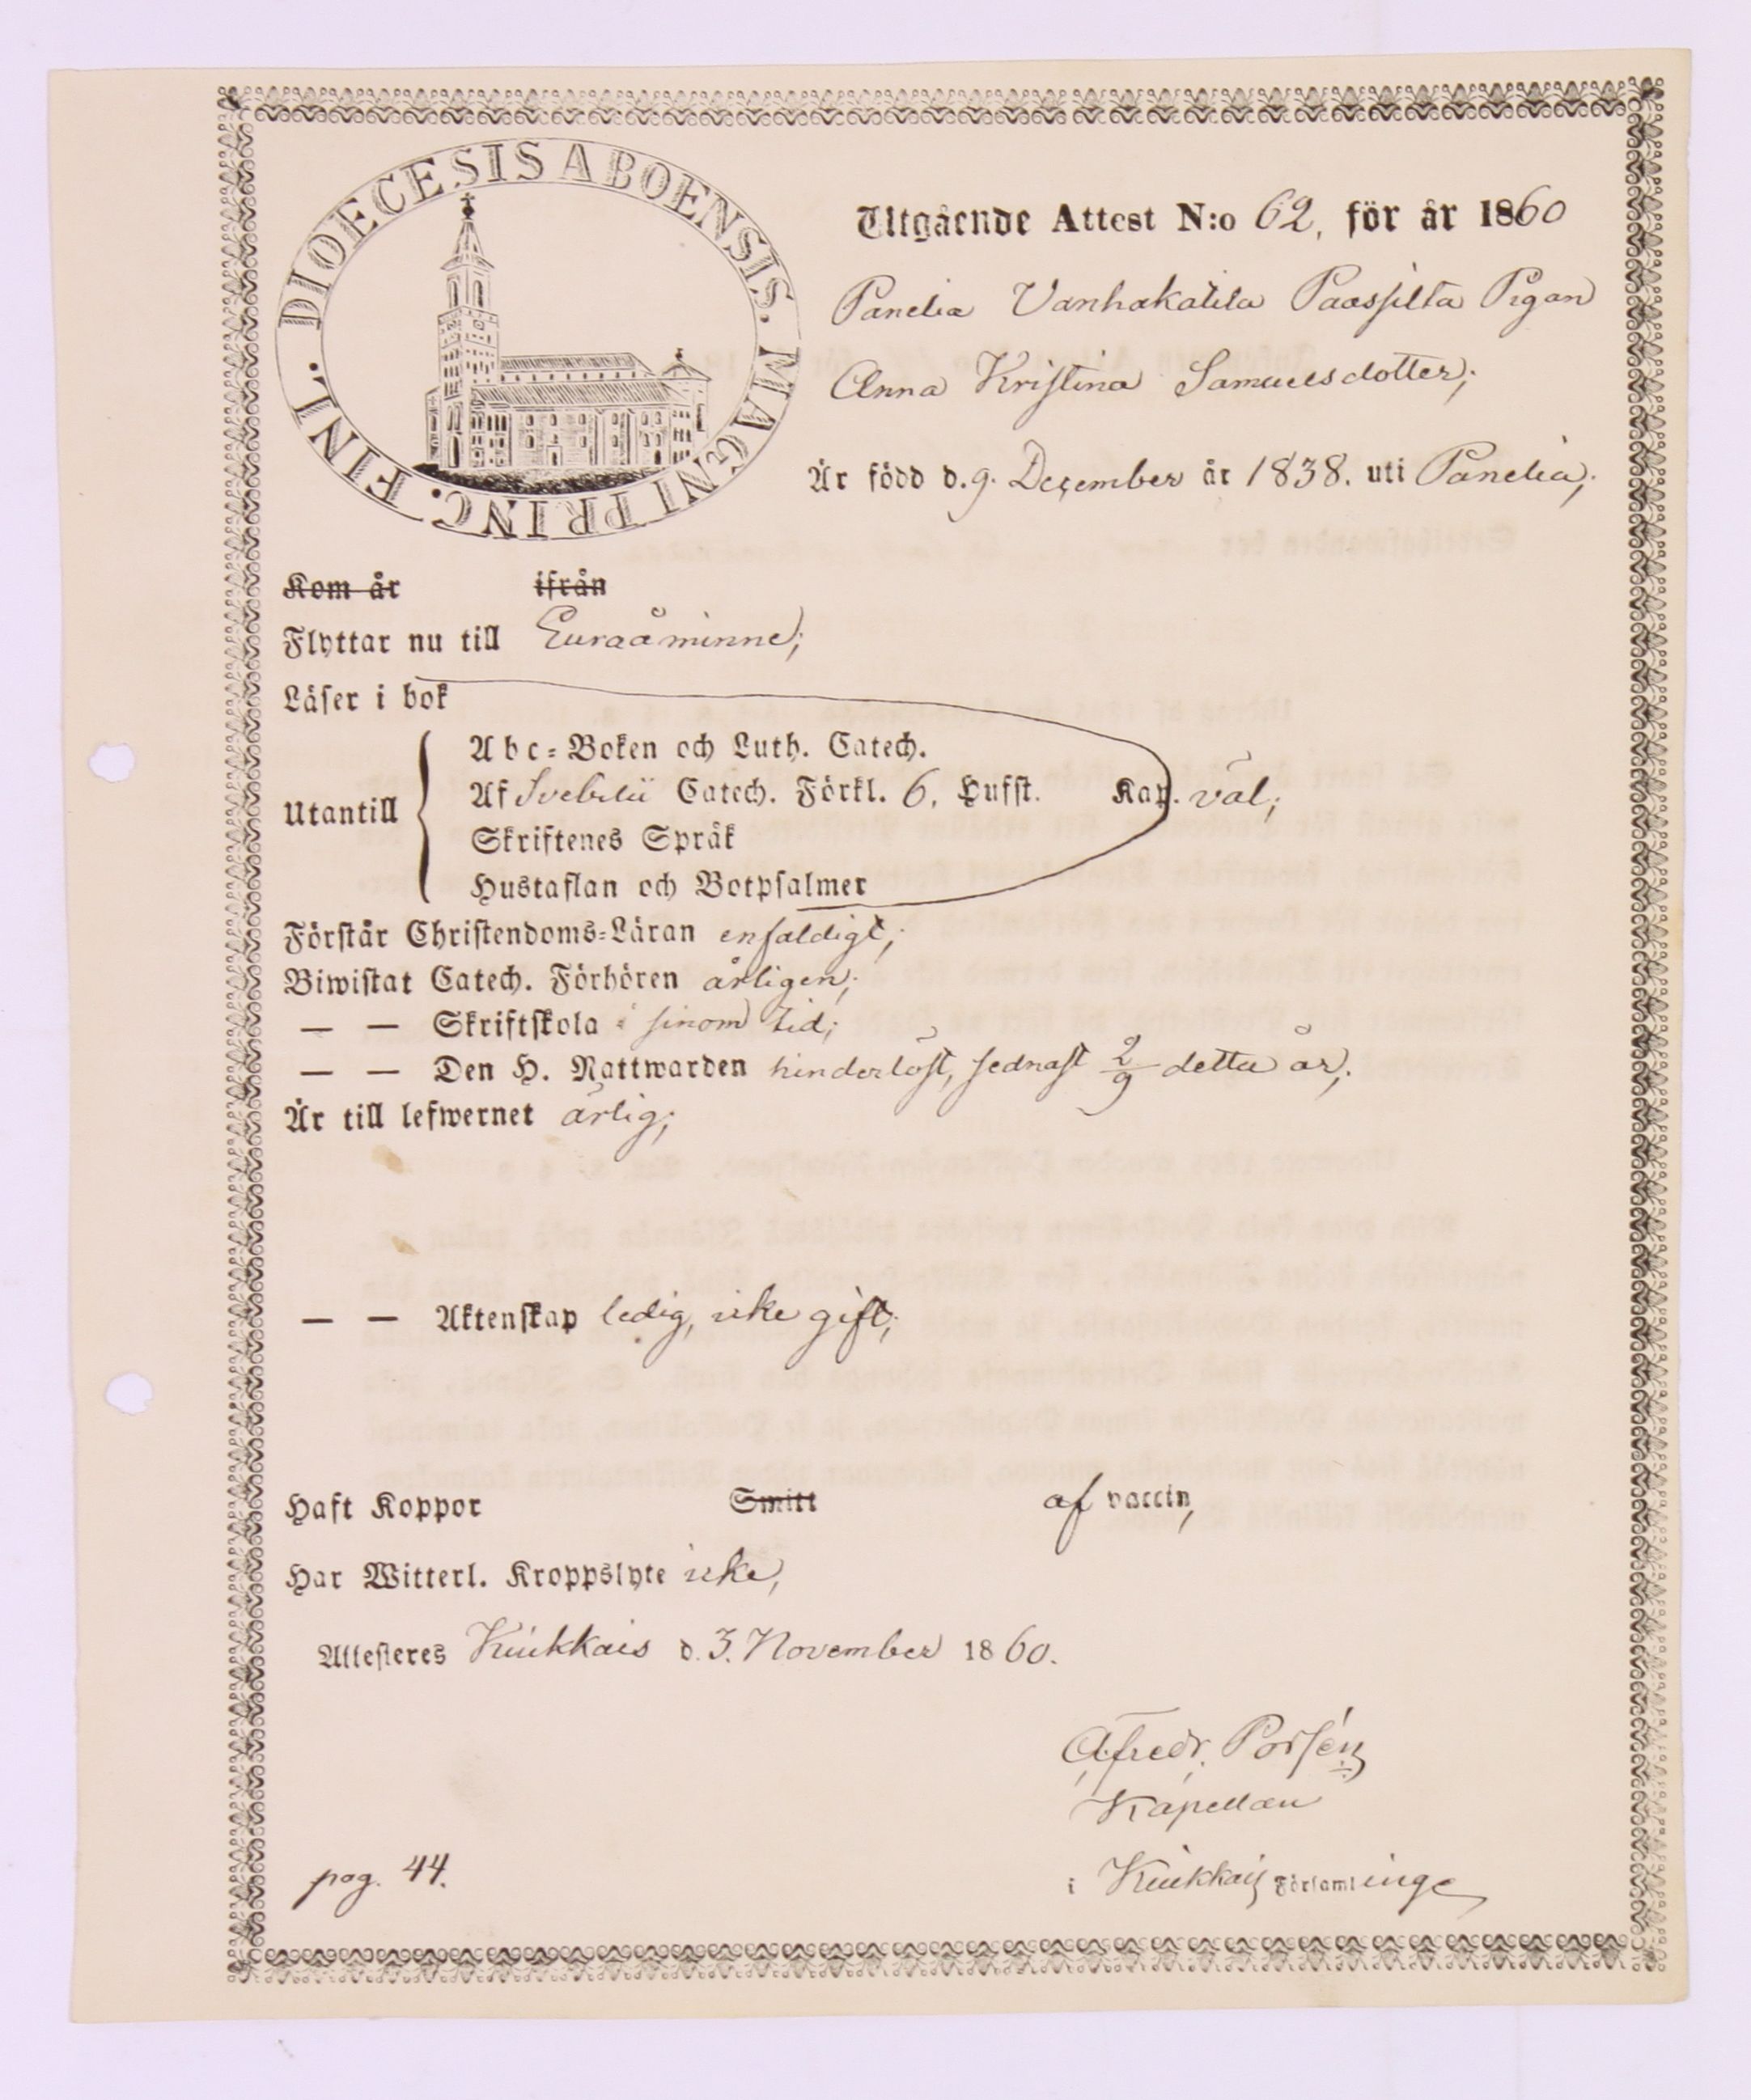 DIOECESIS ABOENSIS. MAGNI PRINC. FINL.
Utgående Attest N:o 62, för år 1860
Panelia Vanhakatila Paassilta Pigan
Anna Kristina Samuelsdotter;
Är född d. 9. December år 1838. uti Panelia;
Kom år ifrån
Flyttar nu till Euraåminne;
Läser i bok
Utantill
Abc-Boken och Luth. Catech.
Af Svebilii Catech. Förkl. 6, Hufst. Kap. väl;
Skriftenes Språk
Hustaflan och Botpsalmer
Förstår Christendoms-Läran enfaldigt;
Biwistat Catech. Förhören årligen;
— — Skriftskola i sinom tid;
— — Den H. Nattwarden hinderlöst, sednast 2/9 detta år;
Är till lefwernet ärlig;
— — Äktenskap ledig, icke gift;
Haft Koppor Smitt af vaccin,
Har Witterl. Kroppslyte icke,
Attesteres Kiukkais d. 3. November 1860.
Afredr. Porsén
Kapellan
pag. 44.
i Kiukkais Församlinge